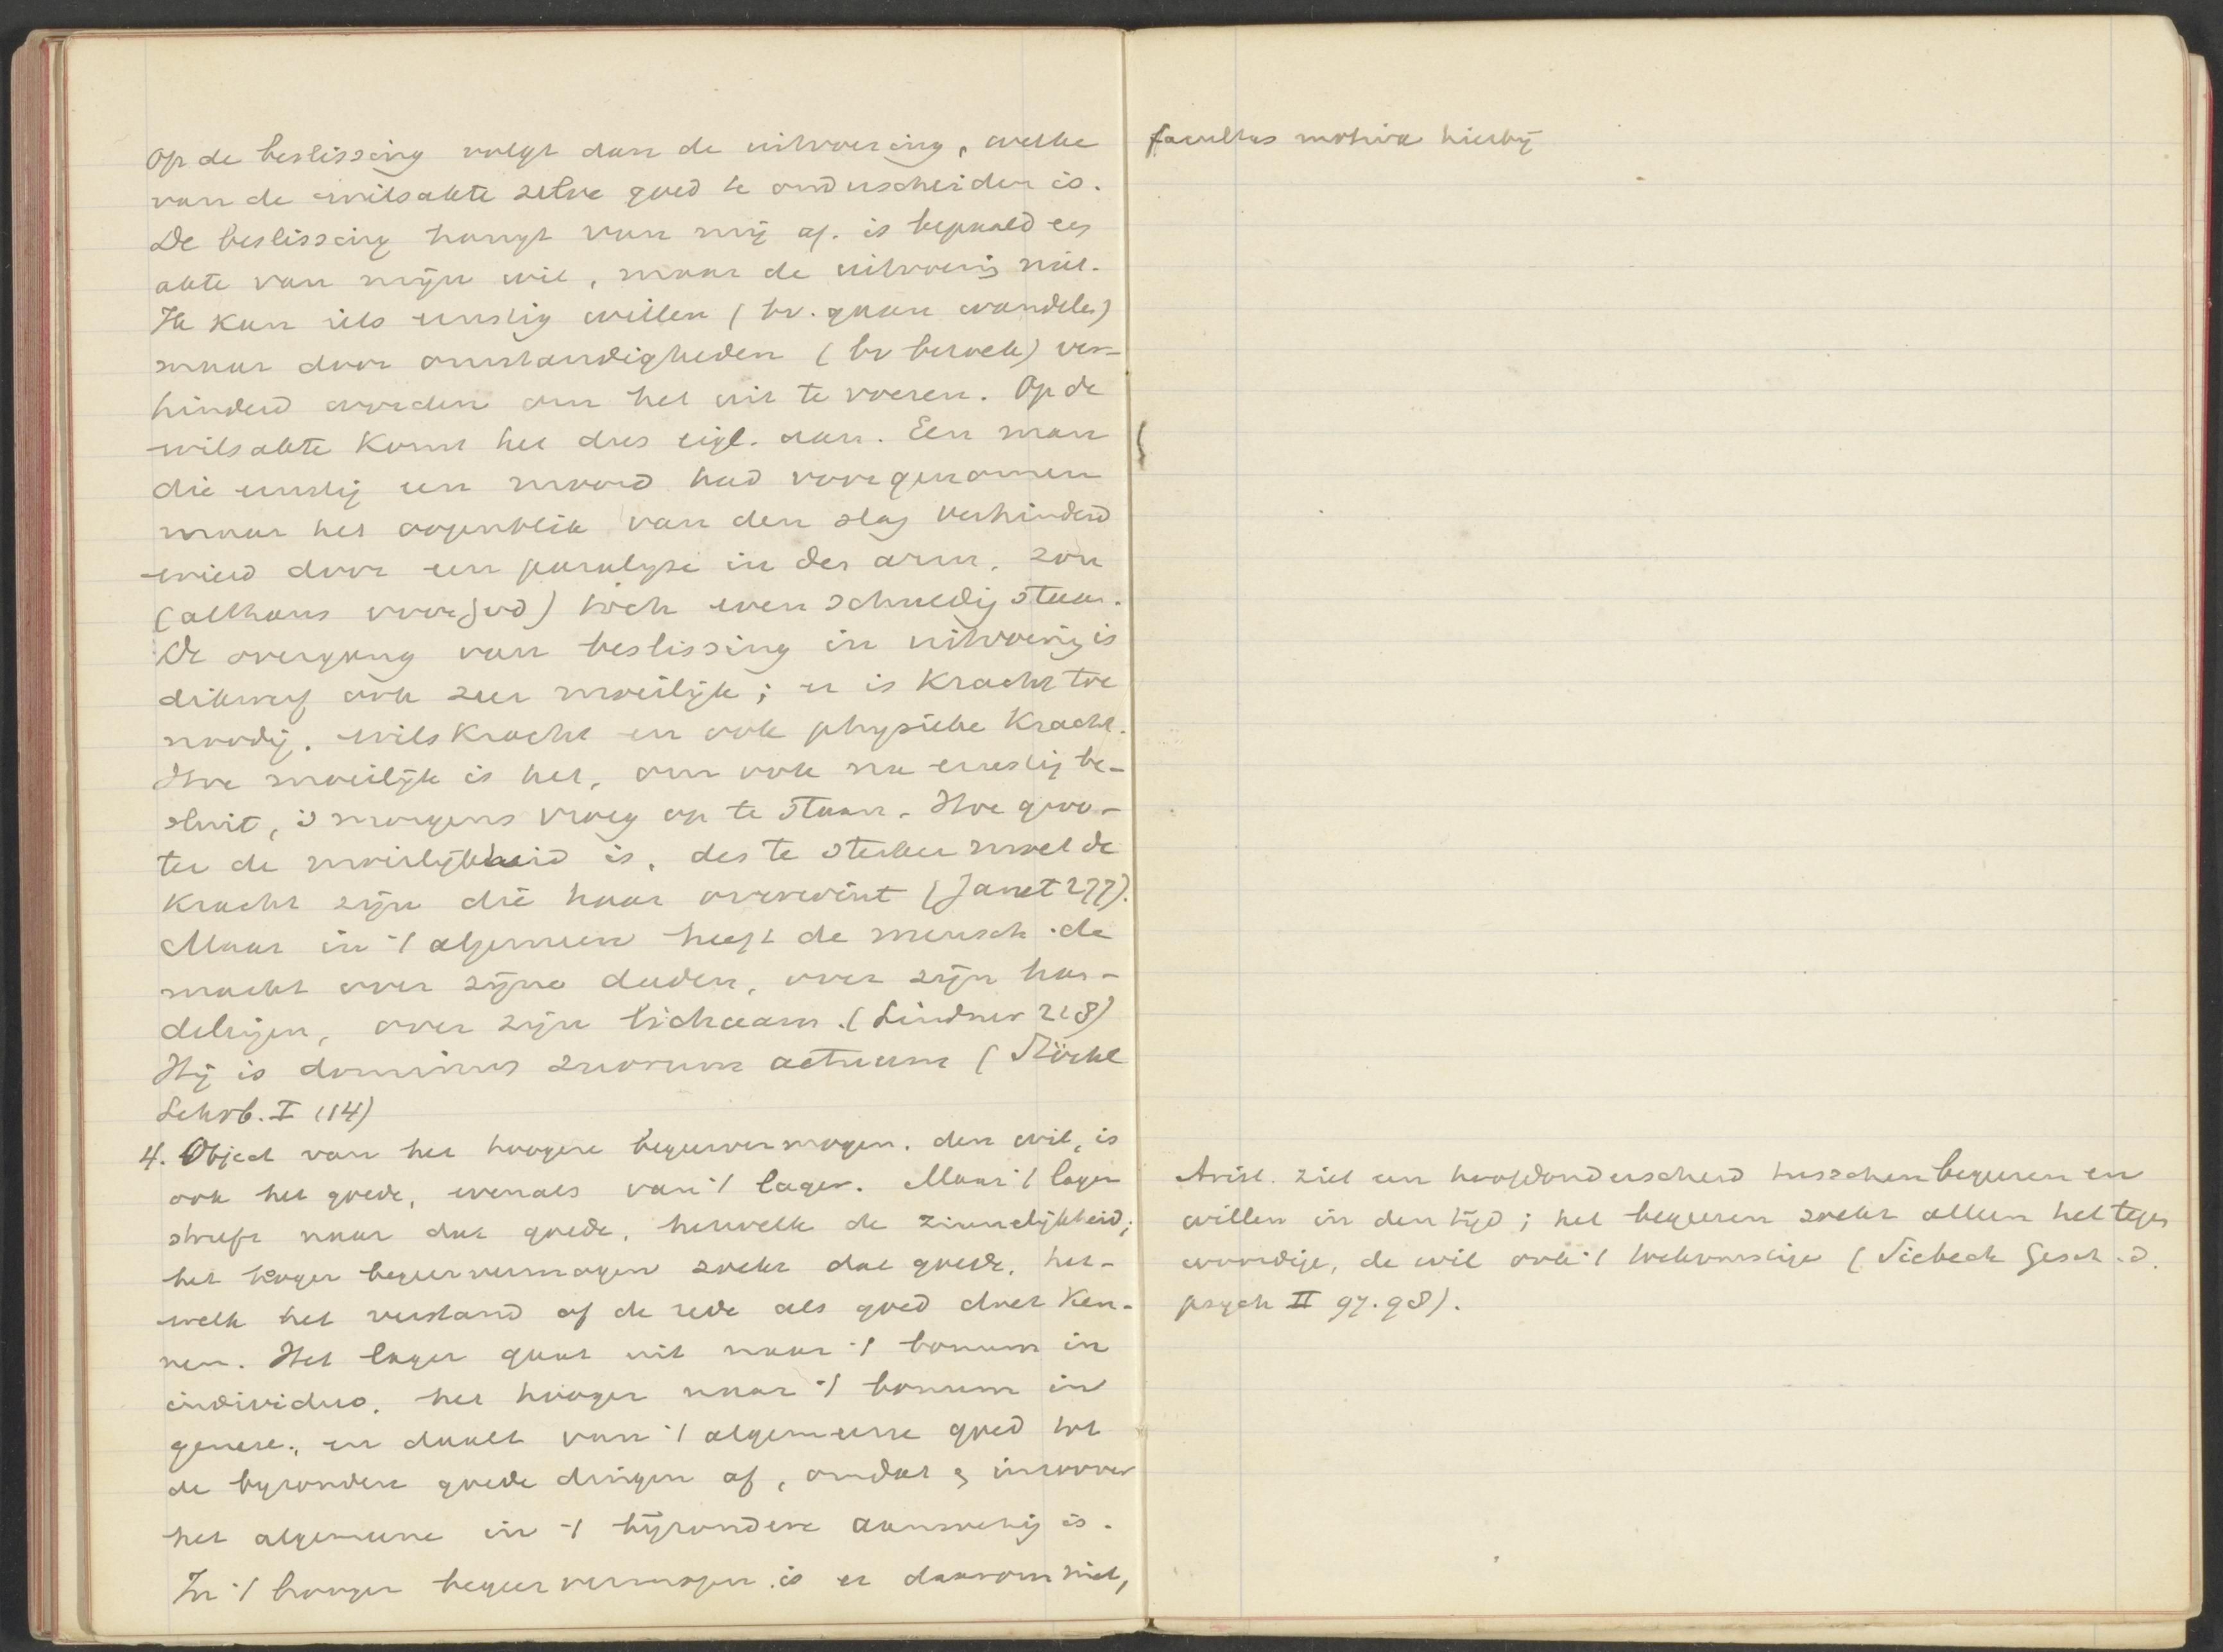 Op de beslissing volgt dan de uitvoering, welke
van de wilsakte zelve goed te onderscheiden is.
De beslissing hangt van mij af. is bepaald een
akte van mijn wil, maar de uitvoering niet.
Ik kan iets ernstig willen (bv. gaan wandelen)
maar door omstandigheden (bv bezoek) ver-
hinderd worden om het uit te voeren. Op de
wilsakte komt het dus eigl. aan. Een man
die ernstig een moord had voorgenomen
maar het oogenblik van den slag verhinderd
wierd door een paralyse in den arm, zou
(althans voor God) toch even schuldig staan.
De overgang van beslissing in uitvoering is
dikwerf ook zeer moeilijk; er is kracht toe
noodig. wilskracht en ook physieke kracht.
Hoe moeilijk is het, om ook na ernstig be-
sluit, 's morgens vroeg op te staan. Hoe groo-
ter de moeilijkheid is, des te sterker moet de
kracht zijn die haar overwint (Janet 277).
Maar in 't algemeen heeft de mensch de
macht over zijne daden, over zijn han-
delingen, over zijn lichaam. (Lindner 218)
Hij is dominus suorum actuum (Stöckl
Lehrb. I 114)
4. Object van het hoogere begeervermogen, den wil, is
ook het goede, evenals van 't lager. Maar 't lager
streeft naar dat goede, hetwelk de zinnelijkheid;
het hooger begeervermogen zoekt dat goede, het-
welk het verstand of de rede als goed doet ken-
nen. Het lager gaat uit naar 't bonum in
individuo, het hooger naar 't bonum in
genere, en daalt van 't algemeene goed tot
de byzondere goede dingen af, omdat & inzoover
het algemeene in 't bijzondere aanwezig is.
In 't hooger begeervermogen is er daarom niet,
facultas motiva hierbij
Arist. ziet een hoofdonderscheid tusschen begeeren en
willen in den tijd; het begeeren zoekt alleen het tegen
woordige, de wil ook 't toekomstige (Siebeck Gesch. d.
psych II 97.98).